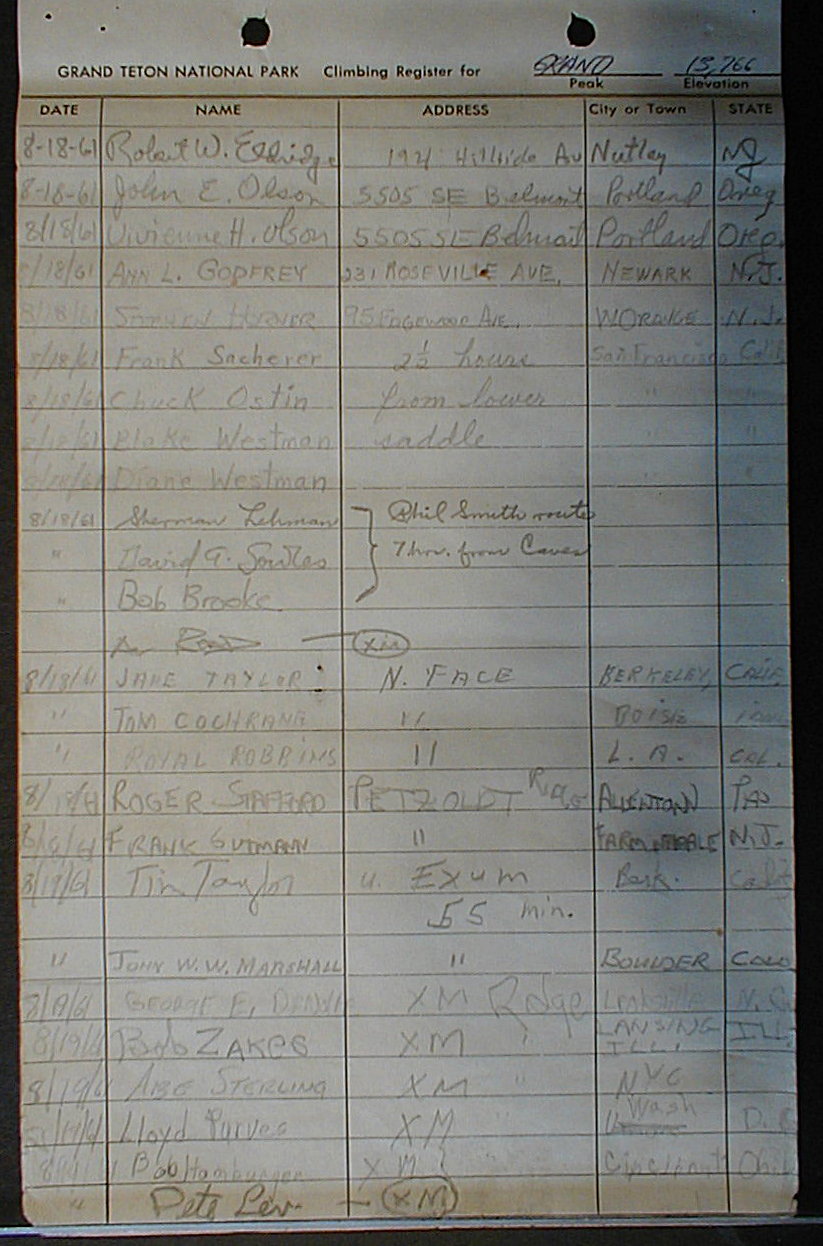 GRAND TETON NATIONAL PARK Climbing Register for GRAND 13,766
Peak Elevation
DATE NAME ADDRESS City or Town STATE
8-18-61 Robert W. Eldridge 192 Hillside Av Nutley NJ
8-18-61 John E. Olson 5505 SE Belmont Portland Oreg
8/18/61 Vivienne H. Olson 5505 SE Belmont Portland Oreg.
8/18/61 ANN L. GODFREY 231 ROSEVILLE AVE. NEWARK N.J.
8/18/61 95 EDGEWOOD AVE. W ORANGE N.J.
8/18/61 Frank Sacherer 2½ hours San Francisco Calif
8/18/61 Chuck Ostin from lower " "
8/18/61 Blake Westman saddle " "
8/18/61 Diane Westman "
8/18/61 Sherman Lehman Phil Smith route
" David G. Sowles 7 hrs. from Caves
" Bob Brooke
XM
8/18/61 JANE TAYLOR N. FACE BERKELEY, CALIF.
" TOM COCHRANE " BOISE
" ROYAL ROBBINS " L. A. CAL.
8/18/61 ROGER STAFFORD PETZOLDT Ridge ALLENTOWN PA
8/18/61 FRANK GUTMANN " FARMINGDALE N.J.
8/19/61 Tim Taylor u. Exum Berk. Calif
55 min.
" JOHN W.W. MARSHALL " BOULDER COLO
8/19/61 GEORGE E. XM Ridge N.C.
8/19/61 Bob ZAKES XM " LANSING ILL. ILL.
8/19/61 ABE STERLING XM " NYC
8/19/61 Lloyd Purves XM " Wash D.C
Bob Hamburger XM Cincinnati Ohio
" Pete Lev - XM